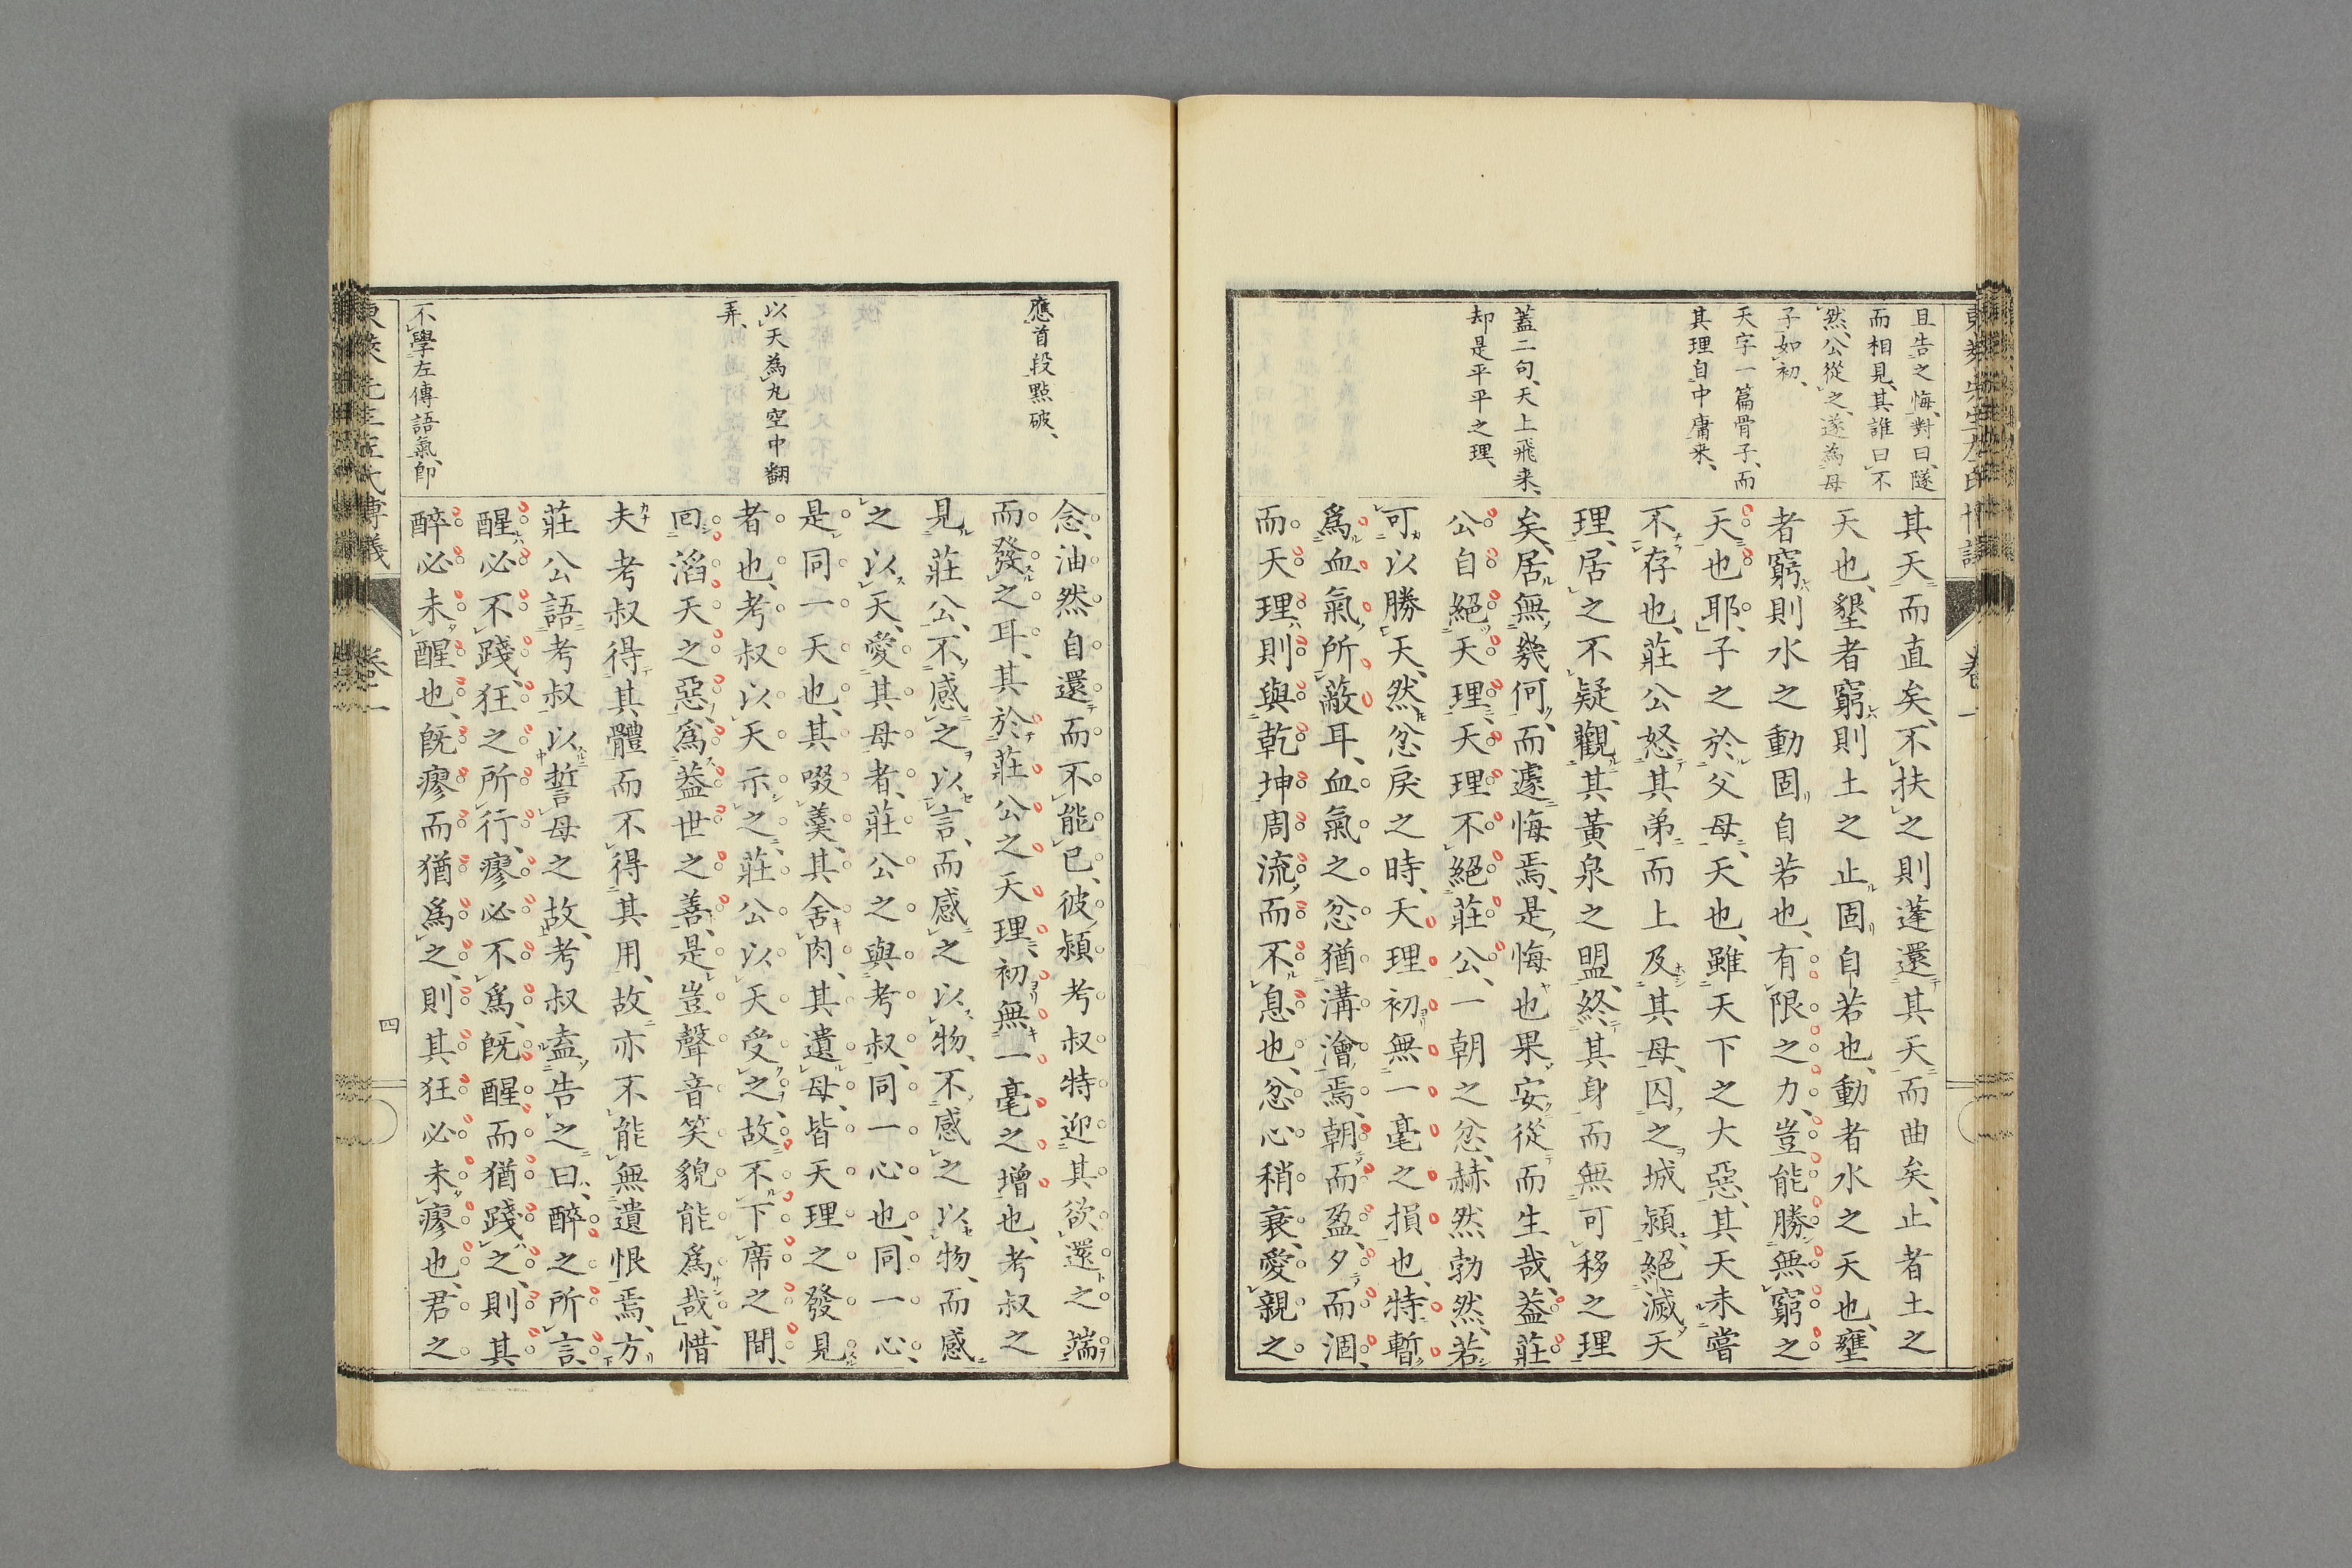 且告之悔、對曰、隧
而相見、其誰曰不
然、公從之、遂為母
子如初、
天字一篇骨子、而
其理自中庸来、
蓋二句、天上飛来、
却是平平之理、
其天而直矣、不扶之則蓬還其天而曲矣、止者土之
天也、墾者窮則土之止固自若也、動者水之天也、壅
者窮則水之動固自若也、有限之力、豈能勝無窮之
天也耶、子之於父母、天也、雖天下之大惡、其天未嘗
不存也、莊公怒其弟而上及其母、囚之城潁、絕滅天
理、居之不疑、觀其黃泉之盟、終其身而無可移之理
矣、居無幾何、而遽悔焉、是悔也果安從而生哉、蓋莊
公自絕天理、天理不絕莊公、一朝之忿、赫然勃然、若
可以勝天、然忿戾之時、天理初無一毫之損也、特暫
爲血氣所蔽耳、血氣之忿猶溝澮焉、朝而盈、夕而涸、
而天理則與乾坤周流而不息也、忿心稍衰、愛親之
東萊先生左氏博議
卷一
應首段點破、
以天為丸空中翻
弄、
不學左傳語氣、卽
念、油然自還而不能已、彼潁考叔特迎其欲還之端
而發之耳、其於莊公之天理、初無一毫之增也、考叔之
見莊公、不感之以言、而感之以物、不感之以物、而感
之以天、愛其母者、莊公之與考叔、同一心也、同一心、
是同一天也、其啜羹、其舍肉、其遺母、皆天理之發見
者也、考叔以天示之、莊公以天受之、故不下席之間、
回滔天之惡、爲蓋世之善、是豈聲音笑貌能爲哉、惜
夫考叔得其體而不得其用、故亦不能無遺恨焉、方
莊公語考叔以誓母之故、考叔盍告之曰、醉之所言、
醒必不踐、狂之所行、瘳必不爲、旣醒而猶踐之、則其
醉必未醒也、旣瘳而猶爲之、則其狂必未瘳也、君之
東萊先生左氏博議
卷一
四